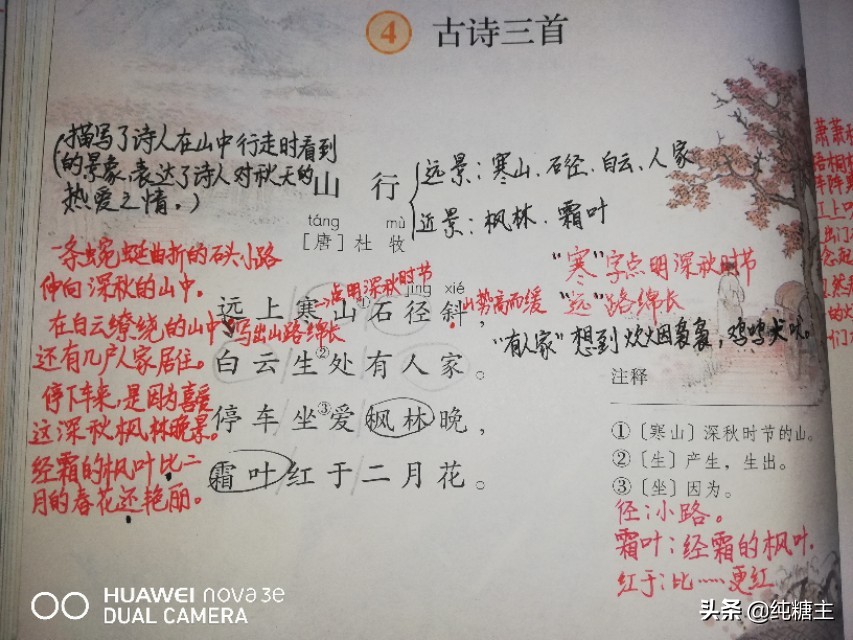 4 古诗三首
(描写了诗人在山中行走时看到
的景象,表达了诗人对秋天的
热爱之情。)
山行
远景:寒山、石径、白云、人家
近景:枫林、霜叶
táng mù
[唐]杜牧
一条蜿蜒曲折的石头小路
伸向深秋的山中。
在白云缭绕的山中
还有几户人家居住。
停下车来,是因为喜爱
这深秋枫林晚景。
经霜的枫叶比二
月的春花还艳丽。
点明深秋时节
jìng xié
远上寒山①石径斜,
写出山路绵长
山势高而缓
白云生②处有人家。
停车坐③爱枫林晚,
霜叶红于二月花。
“寒”字点明深秋时节
“远”路绵长
“有人家”想到炊烟袅袅,鸡鸣犬吠。
注释
①〔寒山〕深秋时节的山。
②〔生〕产生,生出。
③〔坐〕因为。
径:小路。
霜叶:经霜的枫叶.
红于:比……更红
HUAWEI nova 3e
DUAL CAMERA
头条 @纯糖主